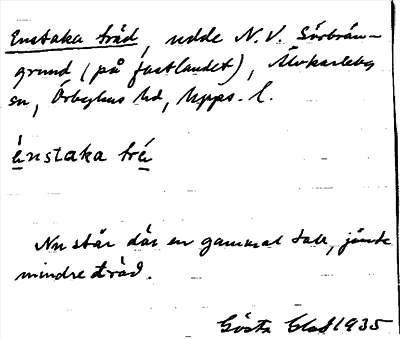 Enstaka träd, udde N.V. Sörbrän-
grund (på fastlandet), Älvkarleby
sn, Örbyhus hd, Upps. l.
énstaka tré
Nu står där en gammal tall, jämte
mindre träd.
Gösta 1935